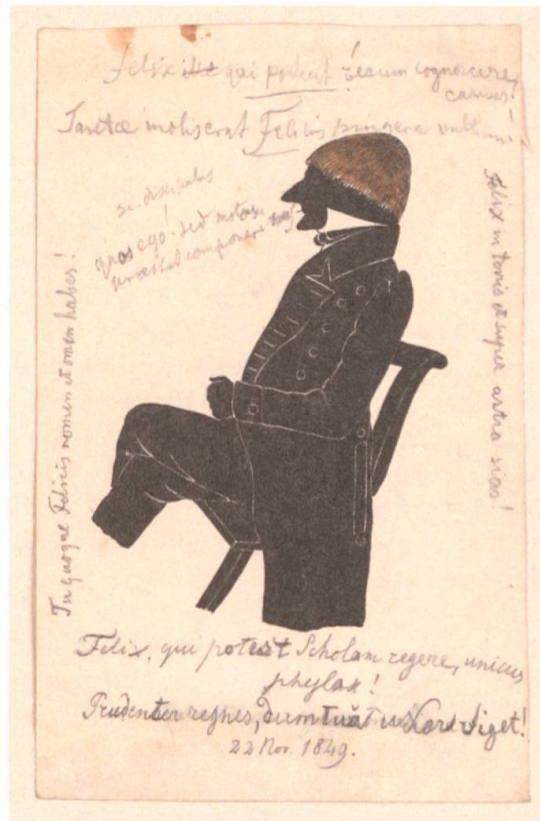 Felix qui potuit rerum cognoscere
causas!
Tantæ molis erat Felicis pingere vultum!
si discipulos
quos ego! sed motos
præstat componere
Tu quoque Felicis nomen et omen habes!
Felix in terris et super astra
Felix, qui potest Scholam regere, unicus
phylax!
Prudenter reges, dum
22 Nov. 1849.